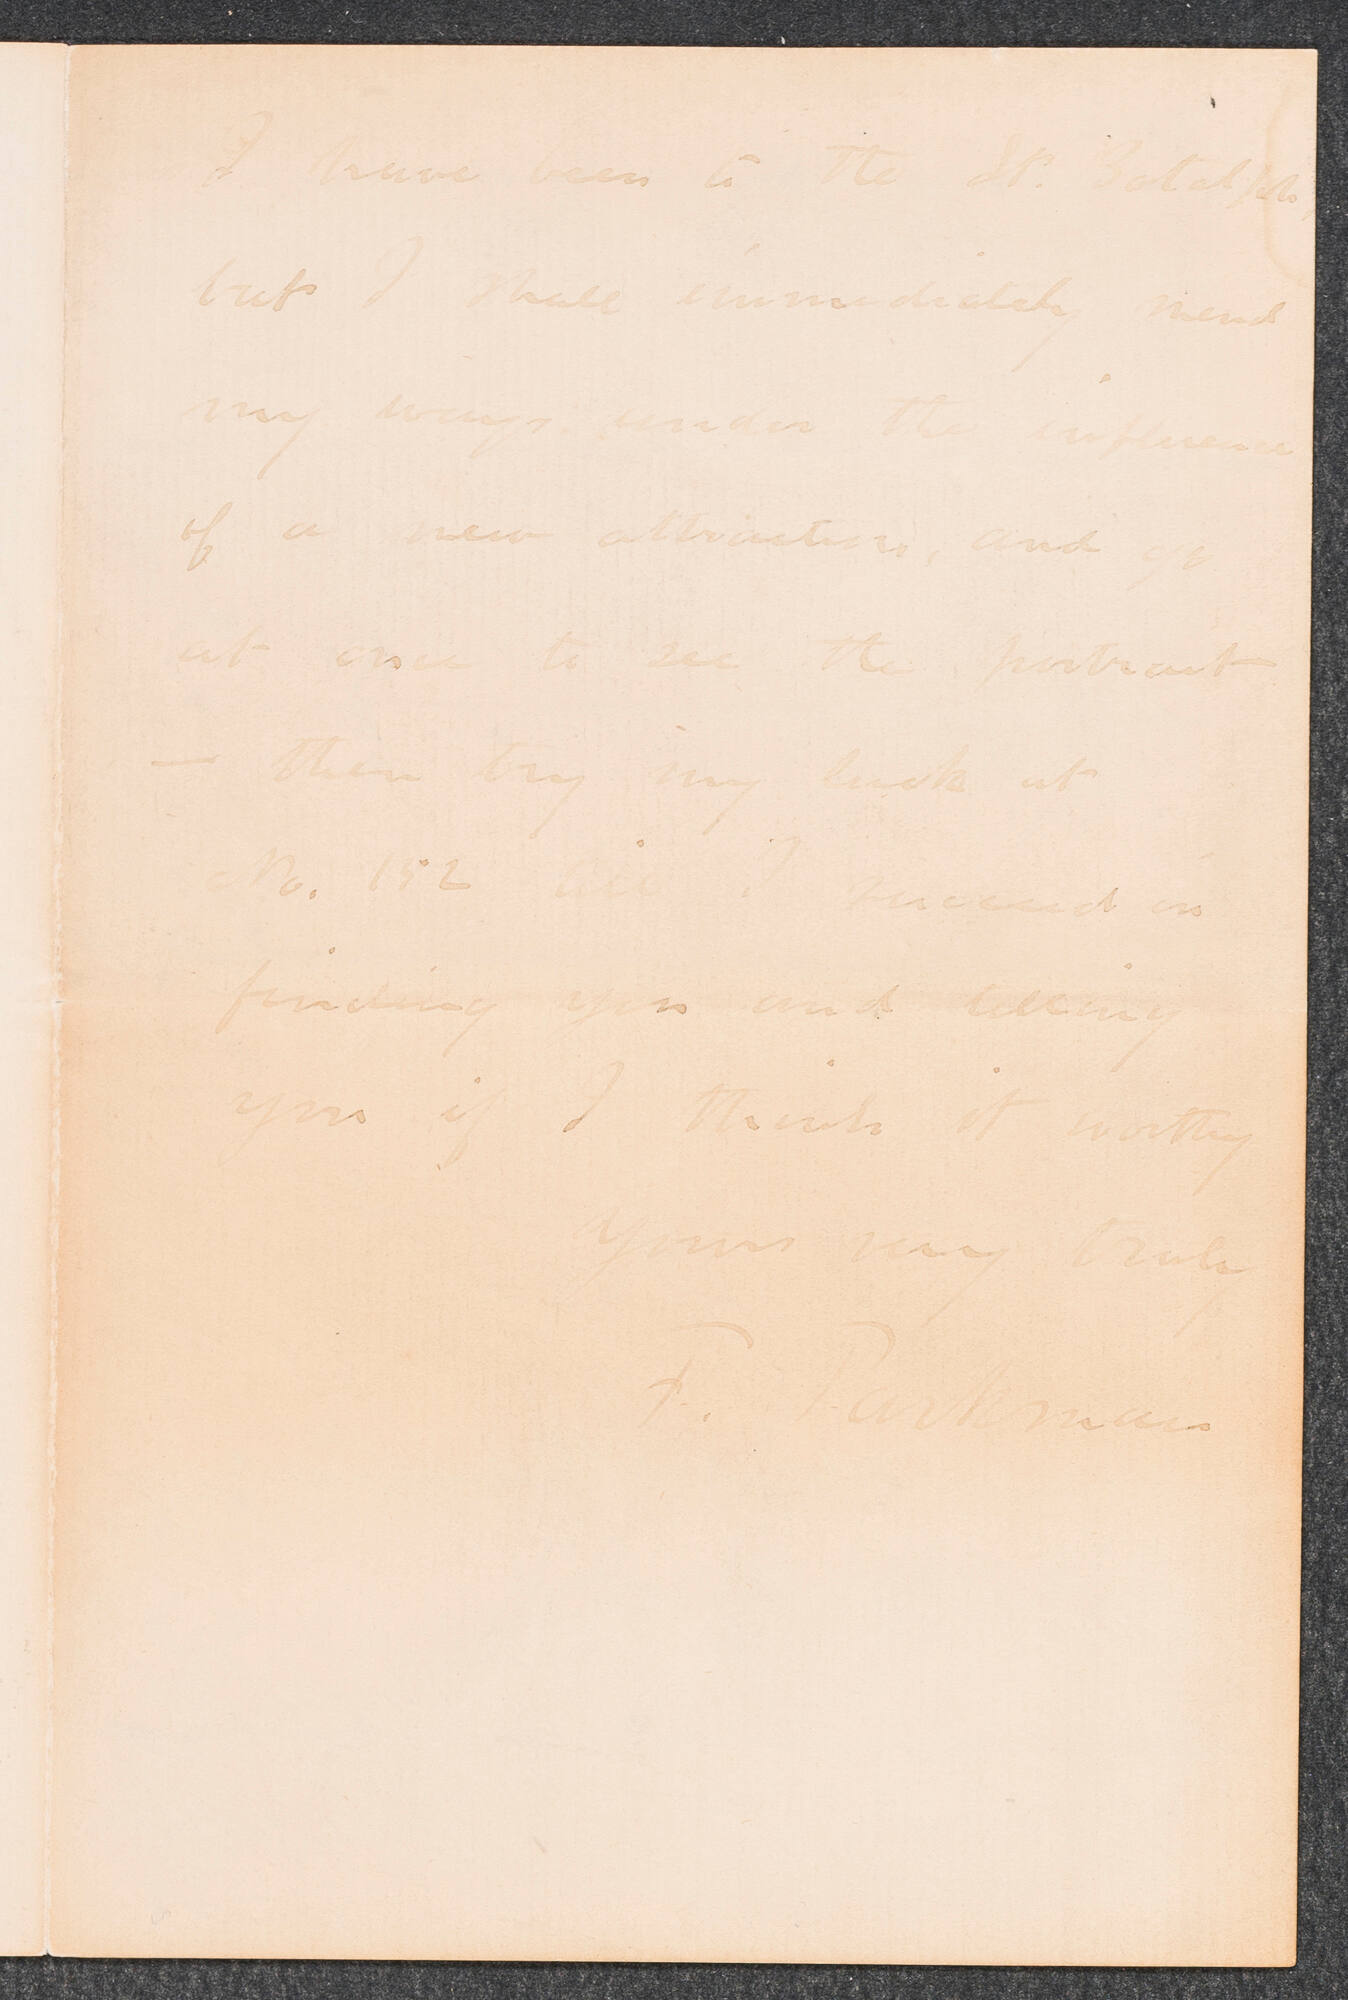 I have been to the St. Botolphs,
but I shall immediately mend
my ways under the influence
of a new attraction, and go
at once to see the portrait
— then try my luck at
No. 152 till I succeed in
finding you and telling
you if I think it worthy
Yours very truly
F. Parkman